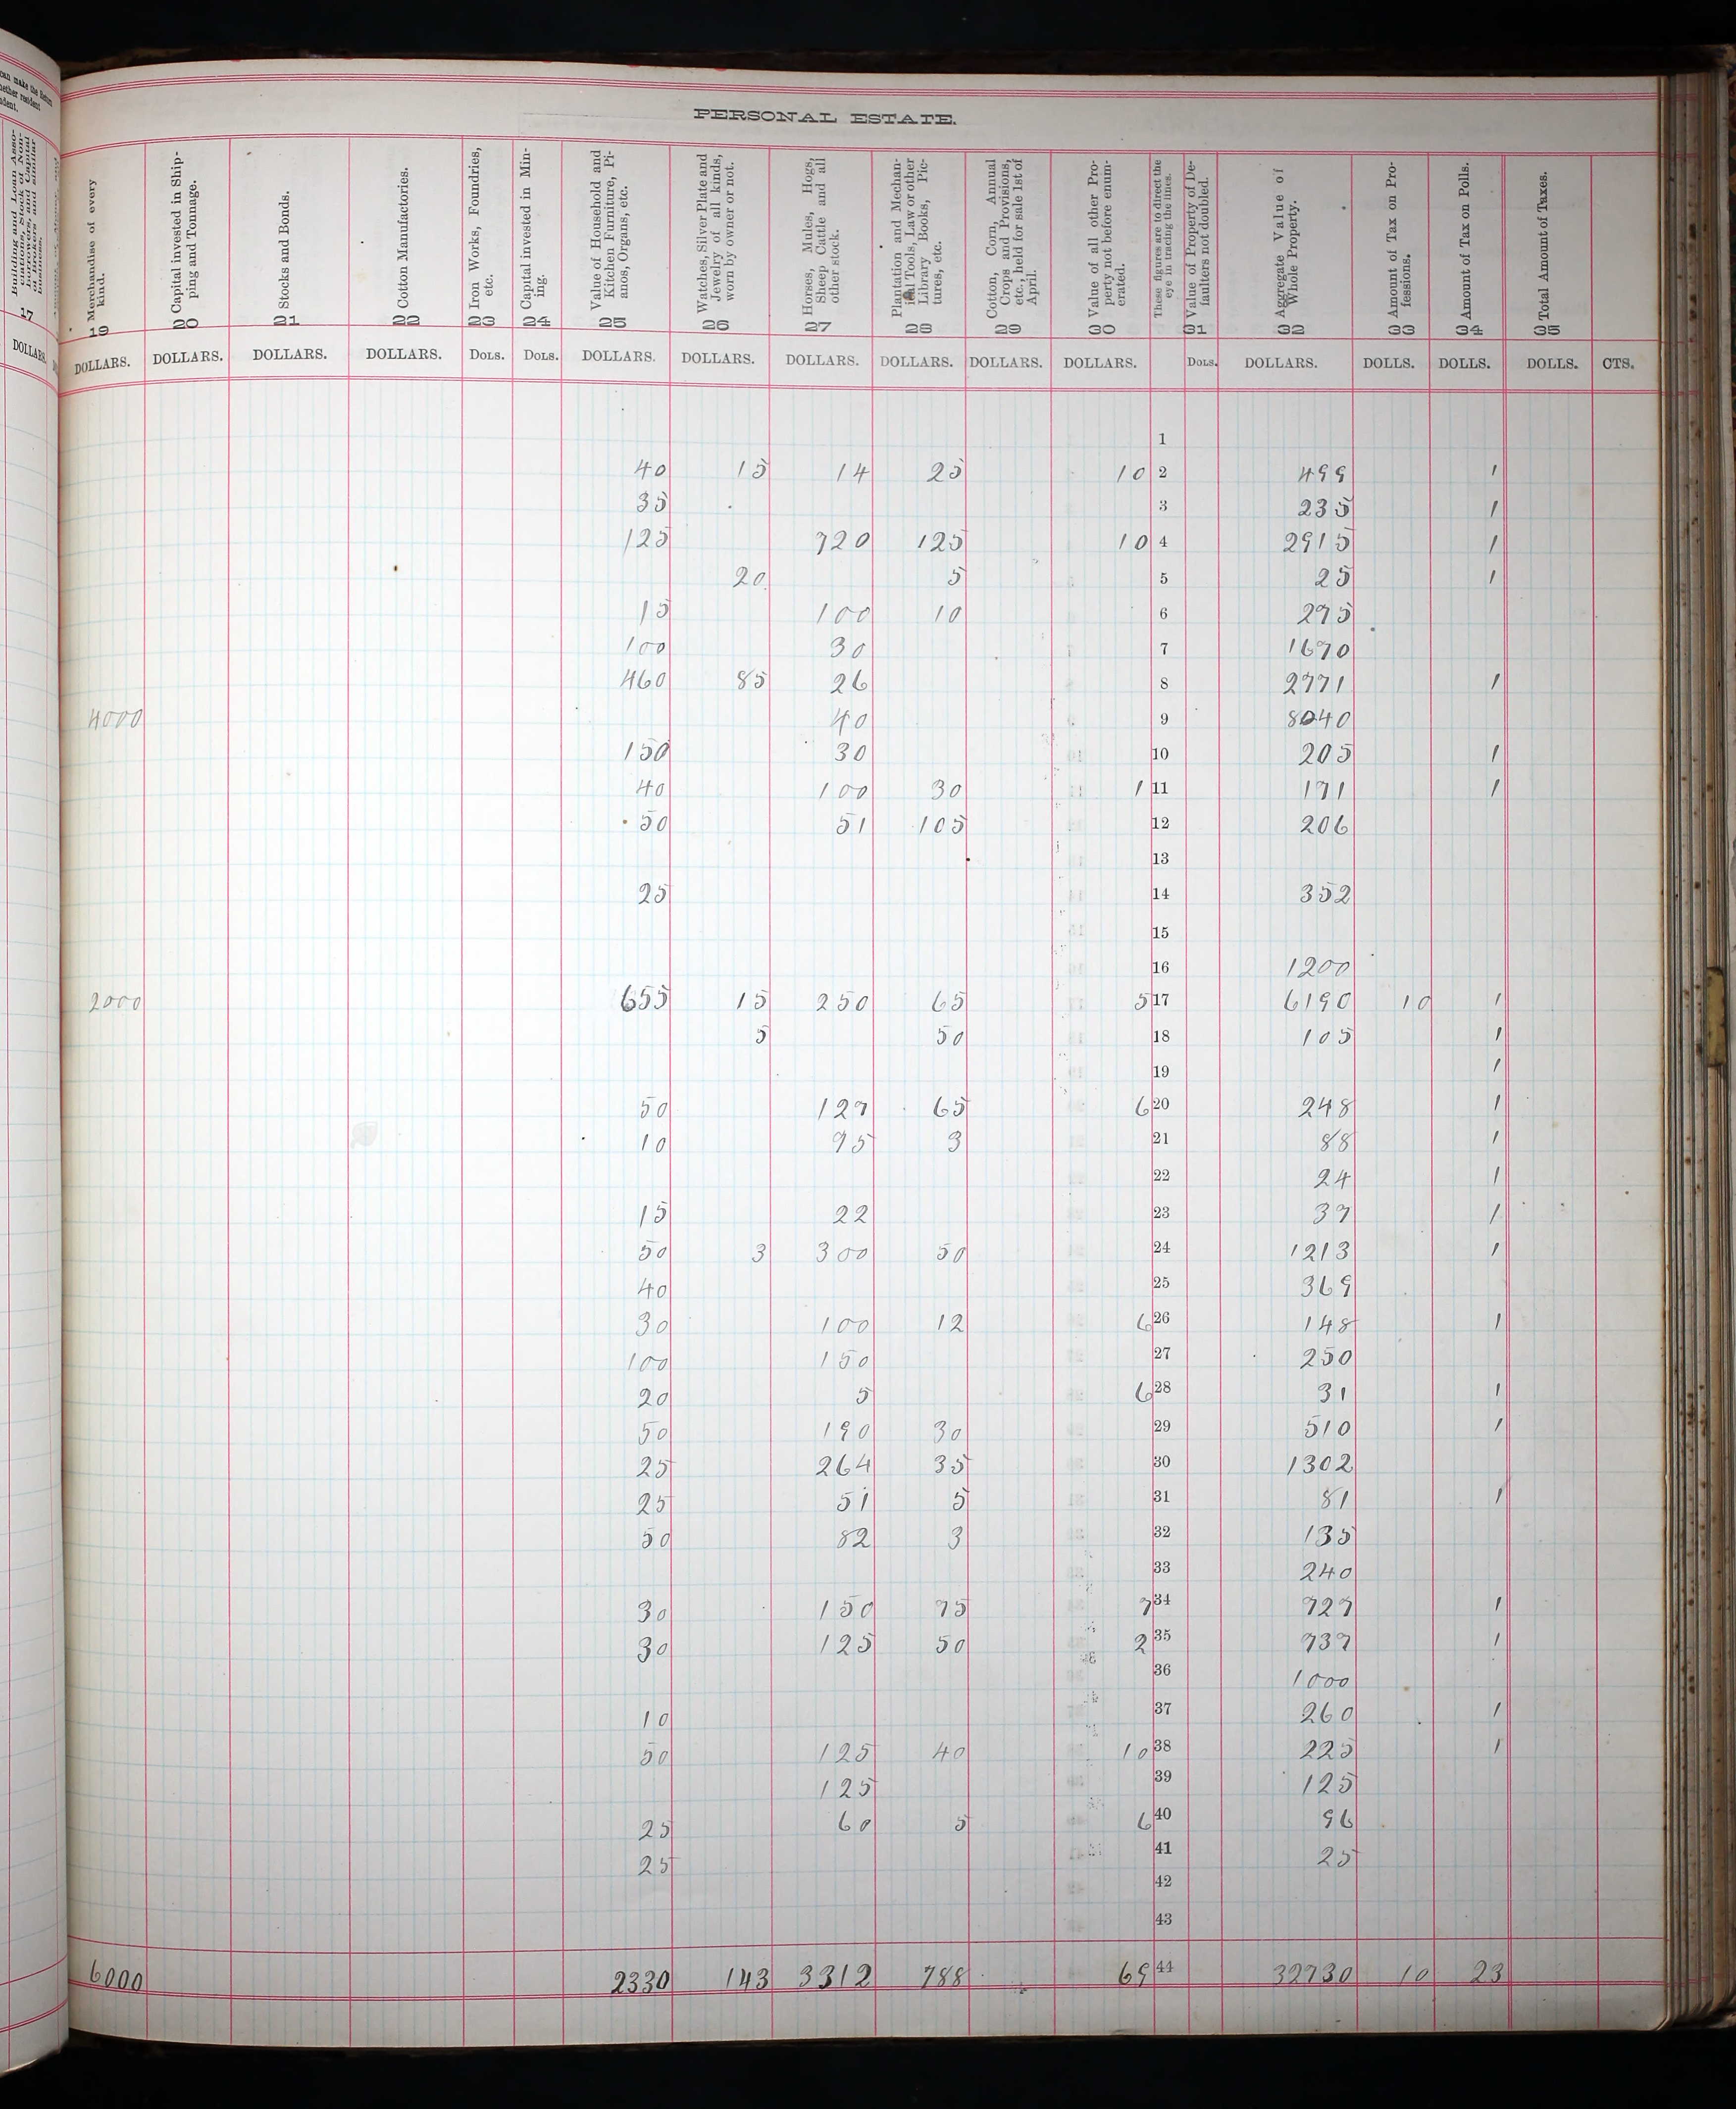 can make the Return
hether resident
ndent.
PERSONAL ESTATE.
Building and Loan Asso-
ciations, Stock of Non-
borrowers, and Capital
of Brokers and similar
business.
17
Merchandise of every
kind.
19
Capital invested in Ship-
ping and Tonnage.
20
Stocks and Bonds.
21
Cotton Manufactories.
22
Iron Works, Foundries,
etc.
23
Capital invested in Min-
ing.
24
Value of Household and
Kitchen Furniture, Pi-
anos, Organs, etc.
25
Watches, Silver Plate and
Jewelry of all kinds,
worn by owner or not.
26
Horses, Mules, Hogs,
Sheep Cattle and all
other stock.
27
Plantation and Mechan-
ical Tools, Law or other
Library Books, Pic-
tures, etc.
28
Cotton, Corn, Annual
Crops and Provisions,
etc., held for sale 1st of
April.
29
Value of all other Pro-
perty not before enum-
erated.
30
These figures are to direct the
eye in tracing the lines.
Value of Property of De-
faulters not doubled.
31
Aggregate Value of
Whole Property.
32
Amount of Tax on Pro-
fessions.
33
Amount of Tax on Polls.
34
Total Amount of Taxes.
35
DOLLARS. DOLLARS. DOLLARS. DOLLARS. DOLLARS. DOLS. DOLS. DOLLARS. DOLLARS. DOLLARS. DOLLARS. DOLLARS. DOLLARS. DOLS. DOLLARS. DOLLS. DOLLS. DOLLS. CTS.
1
40 15 14 25 10 2 499 1
35 3 235 1
125 720 125 10 4 2915 1
20 5 5 25 1
15 100 10 6 275
100 30 7 1670
460 85 26 8 2771 1
4000 40 9 8040
150 30 10 205 1
40 100 30 1 11 171 1
50 51 105 12 206
13
25 14 352
15
16 1200
2000 655 15 250 65 5 17 6190 10 1
5 50 18 105 1
19 1
50 127 65 6 20 248 1
10 75 3 21 88 1
22 24 1
15 22 23 37 1
50 3 300 50 24 1213 1
40 25 369
30 100 12 6 26 148 1
100 150 27 250
20 5 6 28 31 1
50 190 30 29 510 1
25 264 35 30 1302
25 51 5 31 81 1
50 82 3 32 135
33 240
30 150 75 7 34 727 1
30 125 50 2 35 737 1
36 1000
10 37 260 1
50 125 40 10 38 225 1
125 39 125
25 60 5 6 40 96
25 41 25
42
43
6000 2330 143 3312 788 69 44 32730 10 23